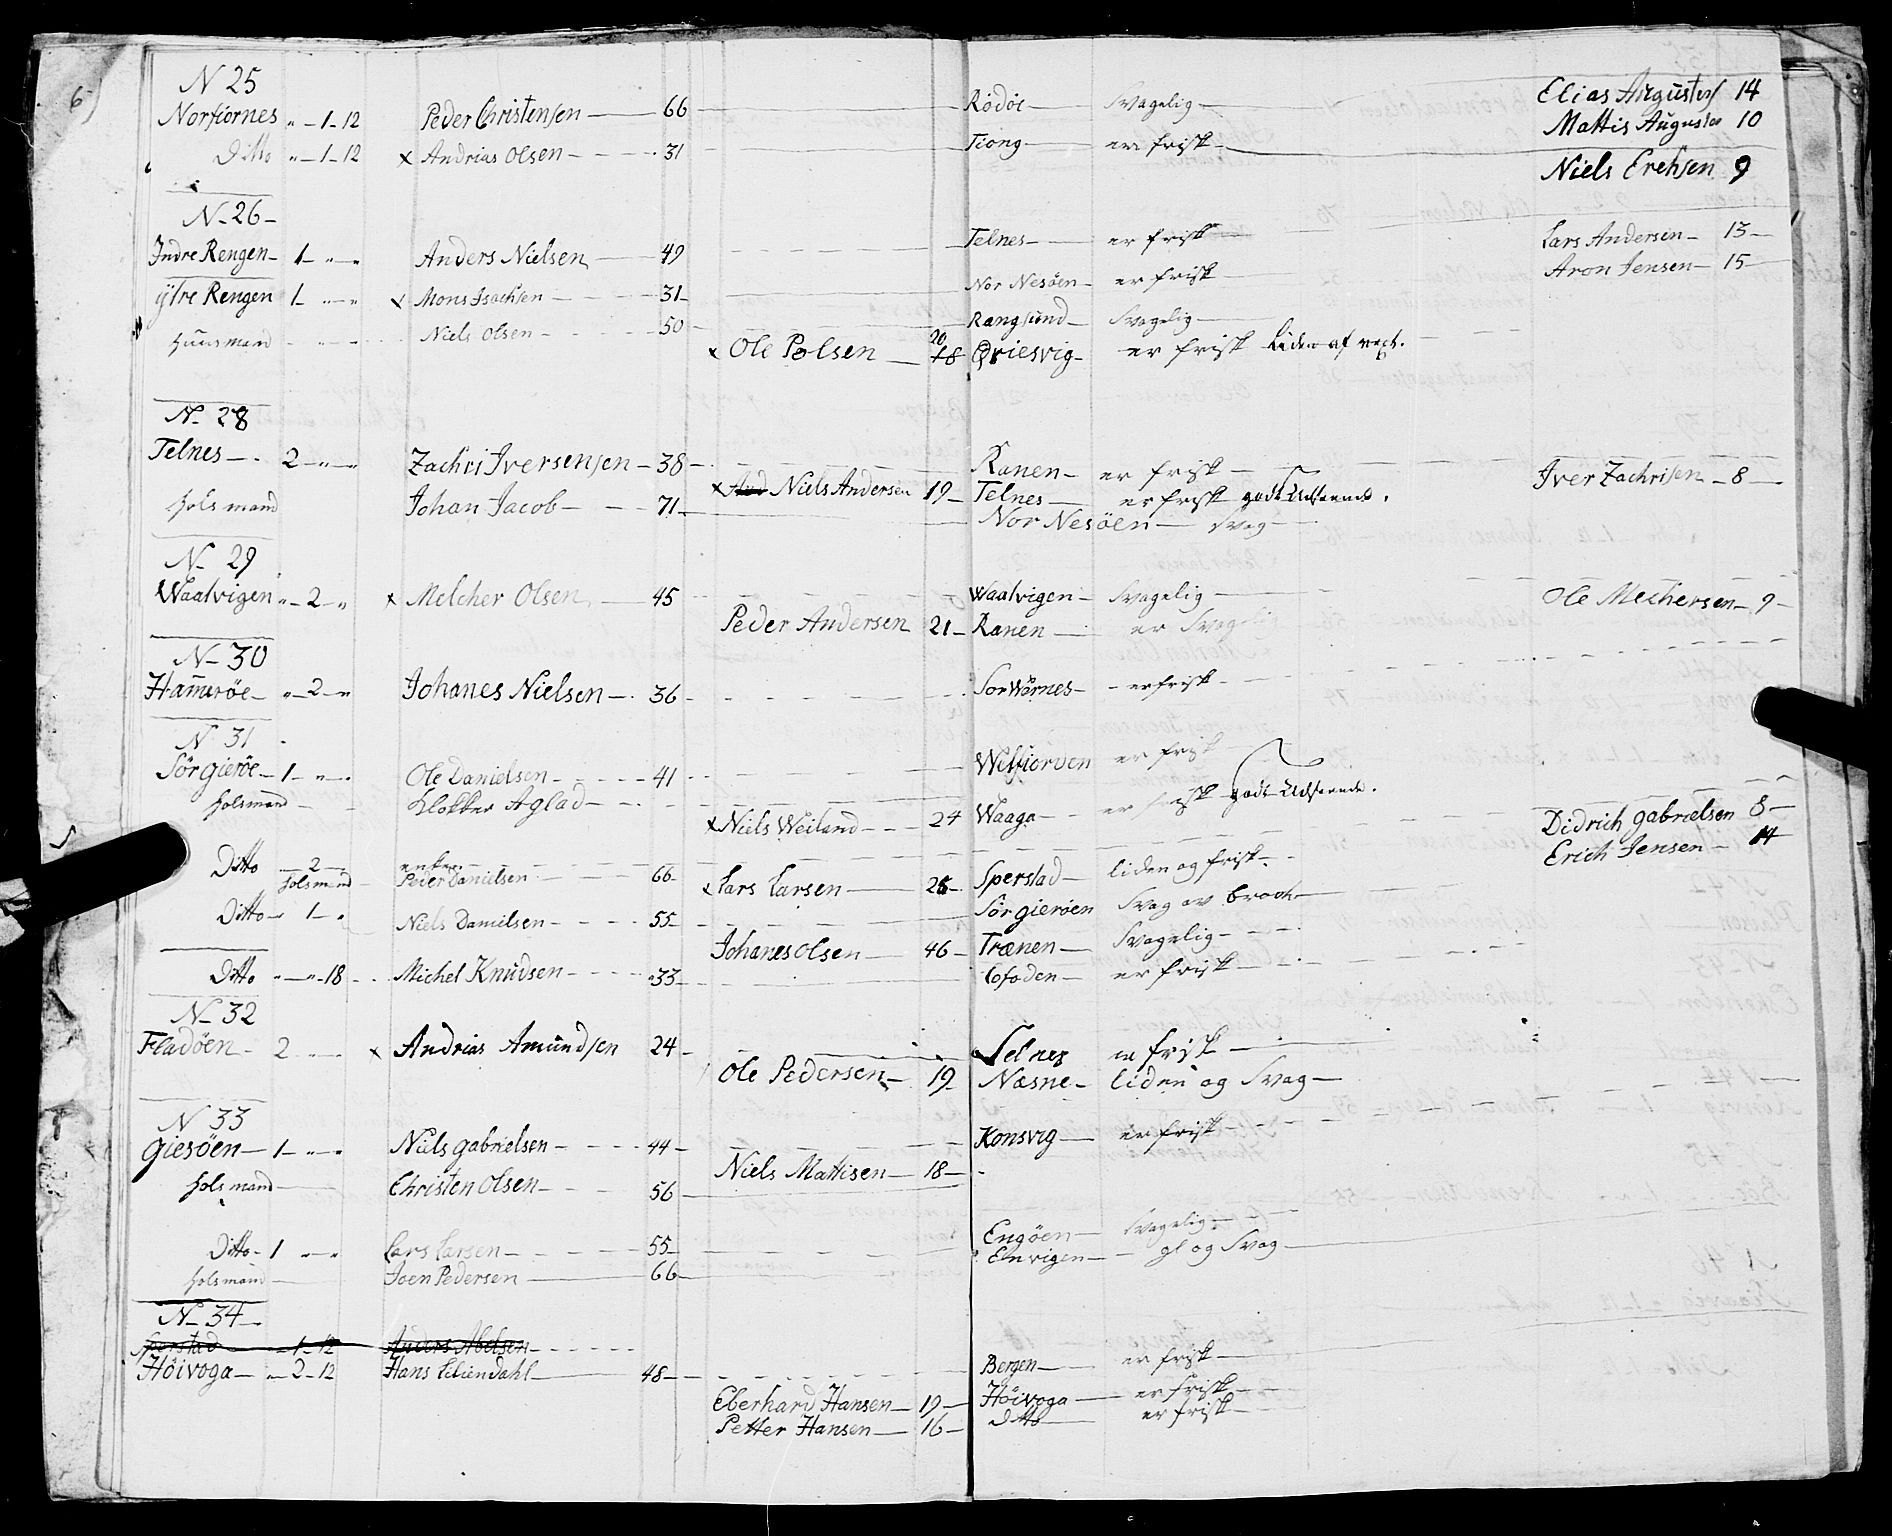 6
N 25
Norfiornes " - 1 - 12 Peder Christensen 66 Rödöe Svagelig Elias Augustus 14
Mattis Augustus 10
Ditto " - 1 - 12 x Andrias Olsen 31 Tiong er frisk
Niels Erchsen 9
N 26
Indre Rengen 1 - " - " Anders Nielsen 49 Telnes er frisk Lars Andersen 13
Aron Jensen 15
ijtre Rengen 1 - " - " x Mons Isachsen 31 Nor Nesöen er frisk
huusmand Niels Olsen 50 Rangsund Svagelig
x Ole Polsen 20 18 Qriesvig er frisk liden af vext.
N 28
Telnes 2 - " - " Zachri Iversensen 38 Ranen er frisk
x And Niels Andersen 19 Telnes er frisk godt Udseende. Iver Zachrisen 8
holsmand Johan Jacob 71 Nor Nesöen Svag
N 29
Waatvigen " - 2 - " x Melcher Olsen 45 Waatvigen Svagelig Ole Mechersen 9
Peder Andersen 21 Ranen er Svagelig
N 30
Hameröe " - 2 - " Johanes Nielsen 36 Sor Wärnes er frisk
N 31
Sör gieröe 1 - " - Ole Danielsen 41 Welfiorden er frisk
holsmand Klokker Aglad
x Niels Weiland 24 Waaga er frisk godt Udseende.
Didrich gabrielsen 8
Erich Jensen 14
Ditto 2 enken
holsmand Peder Danielsen 66 x Lars Larsen 25 Sperstad liden og frisk
Ditto 1 - " Niels Danielsen 55 Sör gieröen Svag av brock
Johanes Olsen 46 Trænen Svagelig
Ditto " - " - 18 Michel Knudsen 33 Lofoden er frisk
N 32
Fladöen 2 x Andrias Amundsen 24 Selnes er frisk
Ole Pedersen 19 Næsne liden og Svag
N 33
Giesöen 1 - " - " Niels gabrielsen 44 Konsvig er frisk
Niels Mattisen 18
holsmand Christen Olsen 56
Ditto 1 - " - " Lars Larsen 55 Engöen Svagelig
holsmand Joen Pedersen 66 Elnvigen gl og Svag
N 34
Sperstad 1 - 12 Anders Abelsen
Höivoga " - 2 - 12 Hans Liliendahl 48 Bergen er frisk
Eberhard Hansen 19 Höivoga er frisk
Petter Hansen 16 Ditto er frisk